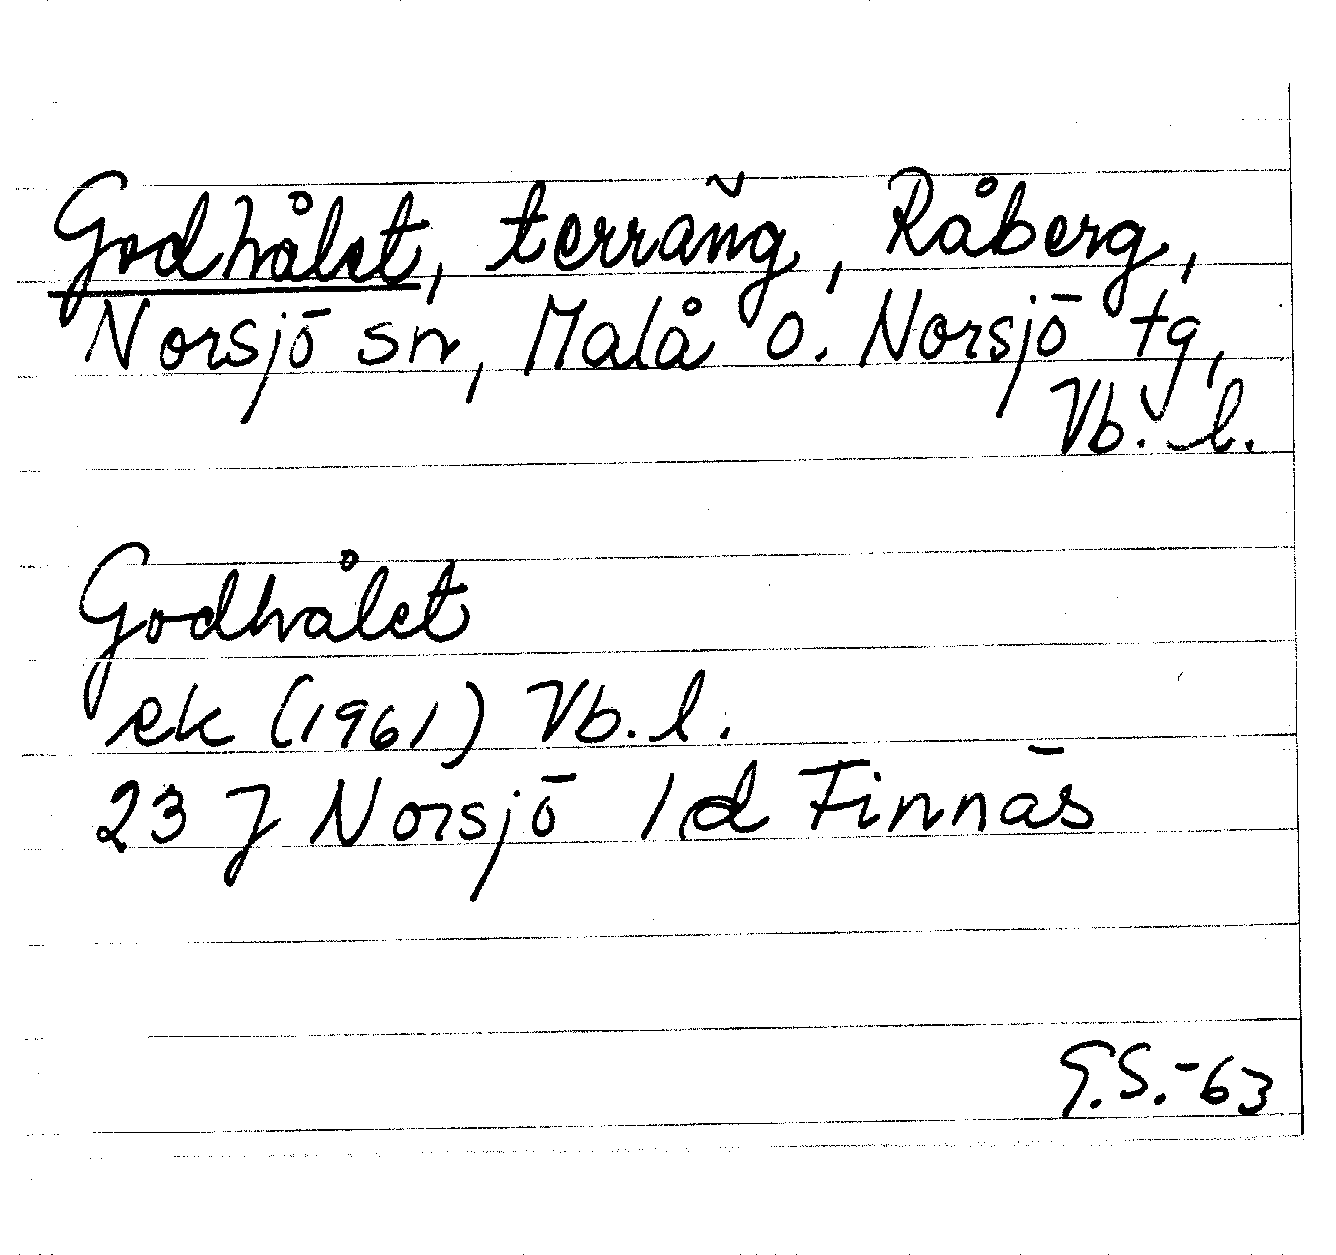 Godhålet, terräng, Råberg,
Norsjö sn, Malå o. Norsjö tg,
Vb. l.
Godhålet
ek (1961) Vb. l.
23 J Norsjö 1d Finnäs
G.S.-63